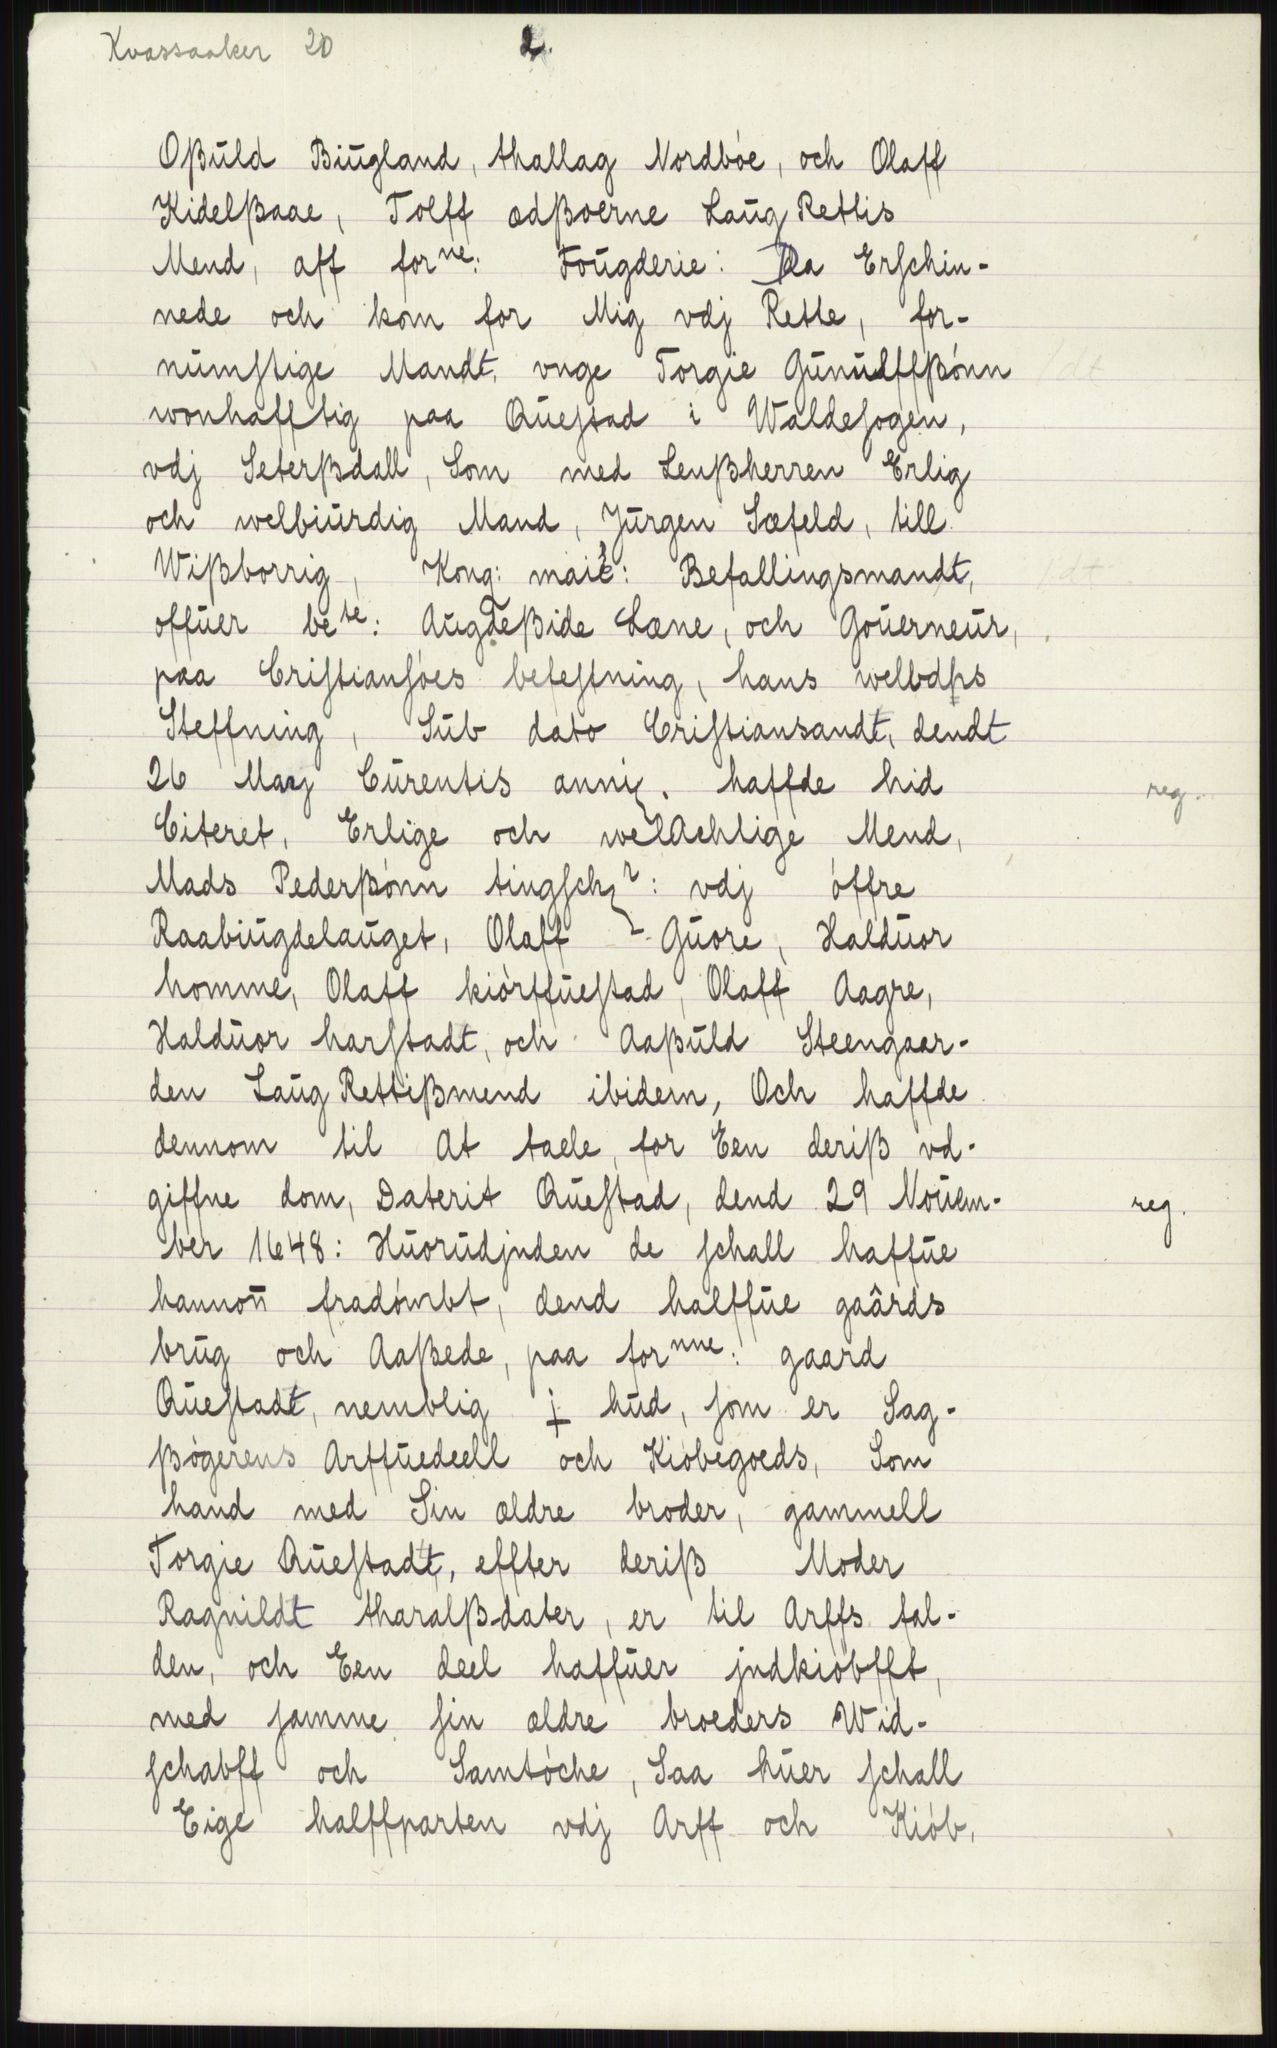 Kvassaaker 20 2.
Oßuld Biugland, thallag Nordbóe, och Olaff
Kidelßaae, Tolff ædßoerne Laug Rettis
Mend, aff forne: Fougderie: Da Erſchin-
nede och kom for Mig vdj Rette, for-
numſtige Mandt, vnge Torgie Gunulffßónn /dt
wonhafftig paa Queſtad i Waldeſogen,
vdj Seterßdall, Som med Lenßherren Erlig
och welbiurdig Mand, Jurgen Sæfeld, till
Wißborrig, Kong: maie: Befallingsmandt, /dt
offuer bete: Augdeßide Læne, och Gouerneur,
paa Criſtianſóes befeſtning, hans welbdßs
Steffning, Sub dato Criſtiansandt, dendt
26 Maij Curentis anni, haffde hid reg.
Citeret, Erlige och welAchtige Mend,
Mads Pederßónn tingſchr: vdj óffre
Raabiugdelauget, Olaff Guore, Halduor
homme, Olaff kiórffueſtad, Olaff Aagre,
Halduor harſtadt, och Aaßuld Steengaar-
den Laug Rettißmend ibidem, Och haffde
dennom til At taele, for Een deriß vd-
giffne dom, Daterit Queſtad, dend 29 Nouem- reg.
ber 1648: Huorudjnden de ſchall haffue
hannon̄ fradómbt, dend halffue gaârds
brug och Aaßede, paa fornne: gaard
Queſtadt, nemblig j hud, ſom er Sag-
ßógerens Arffuedeell och Kiobegoeds, Som
hand med Sin ældre broder, gammell
Torgie Queſtadt, effter deriß Moder
Ragnildt tharalßdater, er til Arffs fal-
den, och Een deel haffuer jndkióbfft,
med ſamme ſin ældre broeders Wid-
ſchabff och Samtóche, Saa huer ſchall
Eige halffparten vdj Arff och Kiób,